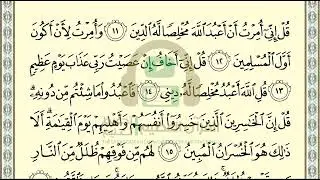 قُلْ إِنِّىٓ أُمِرْتُ أَنْ أَعْبُدَ ٱللَّهَ مُخْلِصًا لَّهُ ٱلدِّينَ ١١ وَأُمِرْتُ لِأَنْ أَكُونَ
أَوَّلَ ٱلْمُسْلِمِينَ ١٢ قُلْ إِنِّىٓ أَخَافُ إِنْ عَصَيْتُ رَبِّى عَذَابَ يَوْمٍ عَظِيمٍ
١٣ قُلِ ٱللَّهَ أَعْبُدُ مُخْلِصًا لَّهُۥ دِينِى ١٤ فَٱعْبُدُوا۟ مَا شِئْتُم مِّن دُونِهِۦ
قُلْ إِنَّ ٱلْخَٰسِرِينَ ٱلَّذِينَ خَسِرُوٓا۟ أَنفُسَهُمْ وَأَهْلِيهِمْ يَوْمَ ٱلْقِيَٰمَةِ أَلَا
ذَٰلِكَ هُوَ ٱلْخُسْرَانُ ٱلْمُبِينُ ١٥ لَهُم مِّن فَوْقِهِمْ ظُلَلٌ مِّنَ ٱلنَّارِ